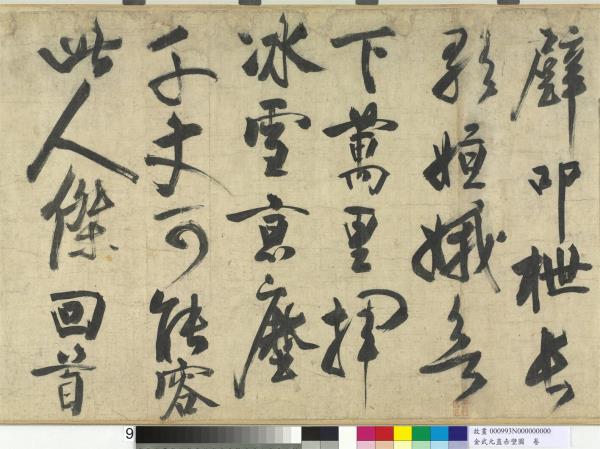 壁叩枻長
歌姮娥欲
下萬里揮
冰雪京塵
千丈可能容
此人傑回首
9
故畫 000993N000000000
金武元直赤壁圖 卷